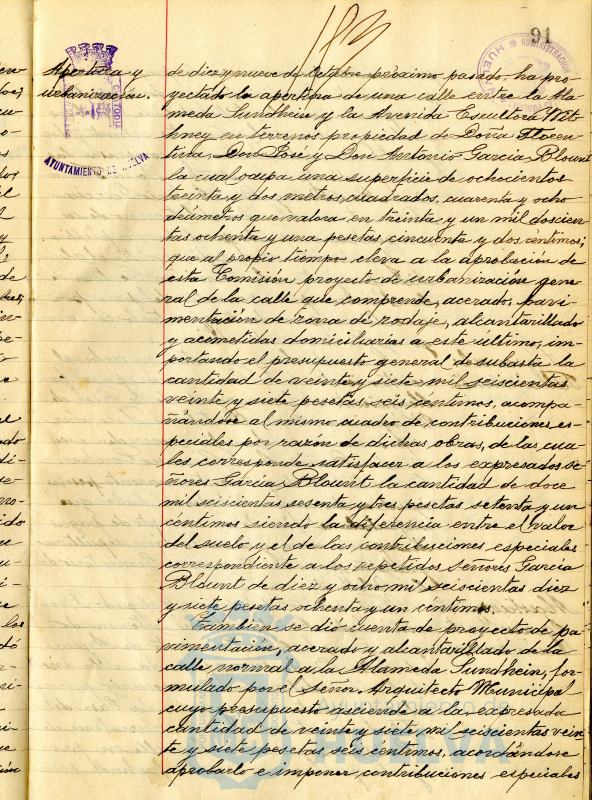 91
Apertura y
urbanización.
AYUNTAMIENTO DE HUELVA
de diez y nueve de Octubre próximo pasado, ha pro-
yectado la apertura de una calle entre la Ala-
meda Sundhein y la Avenida Escultora Whit-
hney en terrenos propiedad de Doña Floren-
tina, Don José y Don Antonio García Blount
la cual ocupa una superficie de ochocientos
treinta y dos metros cuadrados, cuarenta y ocho
decímetros que valora en treinta y un mil doscien-
tas ochenta y una pesetas, cincuenta y dos céntimos;
que al propio tiempo eleva a la aprobación de
esta Comisión proyecto de urbanización gene-
ral de la calle que comprende, acerado, pavi-
mentación de zona de rodaje, alcantarillado
y acometidas domiciliarias a este último, im-
portando el presupuesto general de subasta la
cantidad de veinte y siete mil seiscientas
veinte y siete pesetas seis céntimos, acompa-
ñándose al mismo cuadro de contribuciones es-
peciales por razón de dichas obras, de las cua-
les corresponde satisfacer a los expresados Se-
ñores García Blount la cantidad de doce
mil seiscientas sesenta y tres pesetas setenta y un
céntimos siendo la diferencia entre el valor
del suelo y el de las contribuciones especiales
correspondiente a los repetidos Señores García
Blount de diez y ocho mil seiscientas diez
y siete pesetas ochenta y un céntimos.
Tambien se dió cuenta de proyecto de pa-
vimentación, acerado y alcantarillado de la
calle normal a la Alameda Sundhein, for-
mulado por el Señor Arquitecto Municipal
cuyo presupuesto asciende a la expresada
cantidad de veinte y siete mil seiscientas vein-
te y siete pesetas seis céntimos, acordándose
aprobarlo e imponer contribuciones especiales